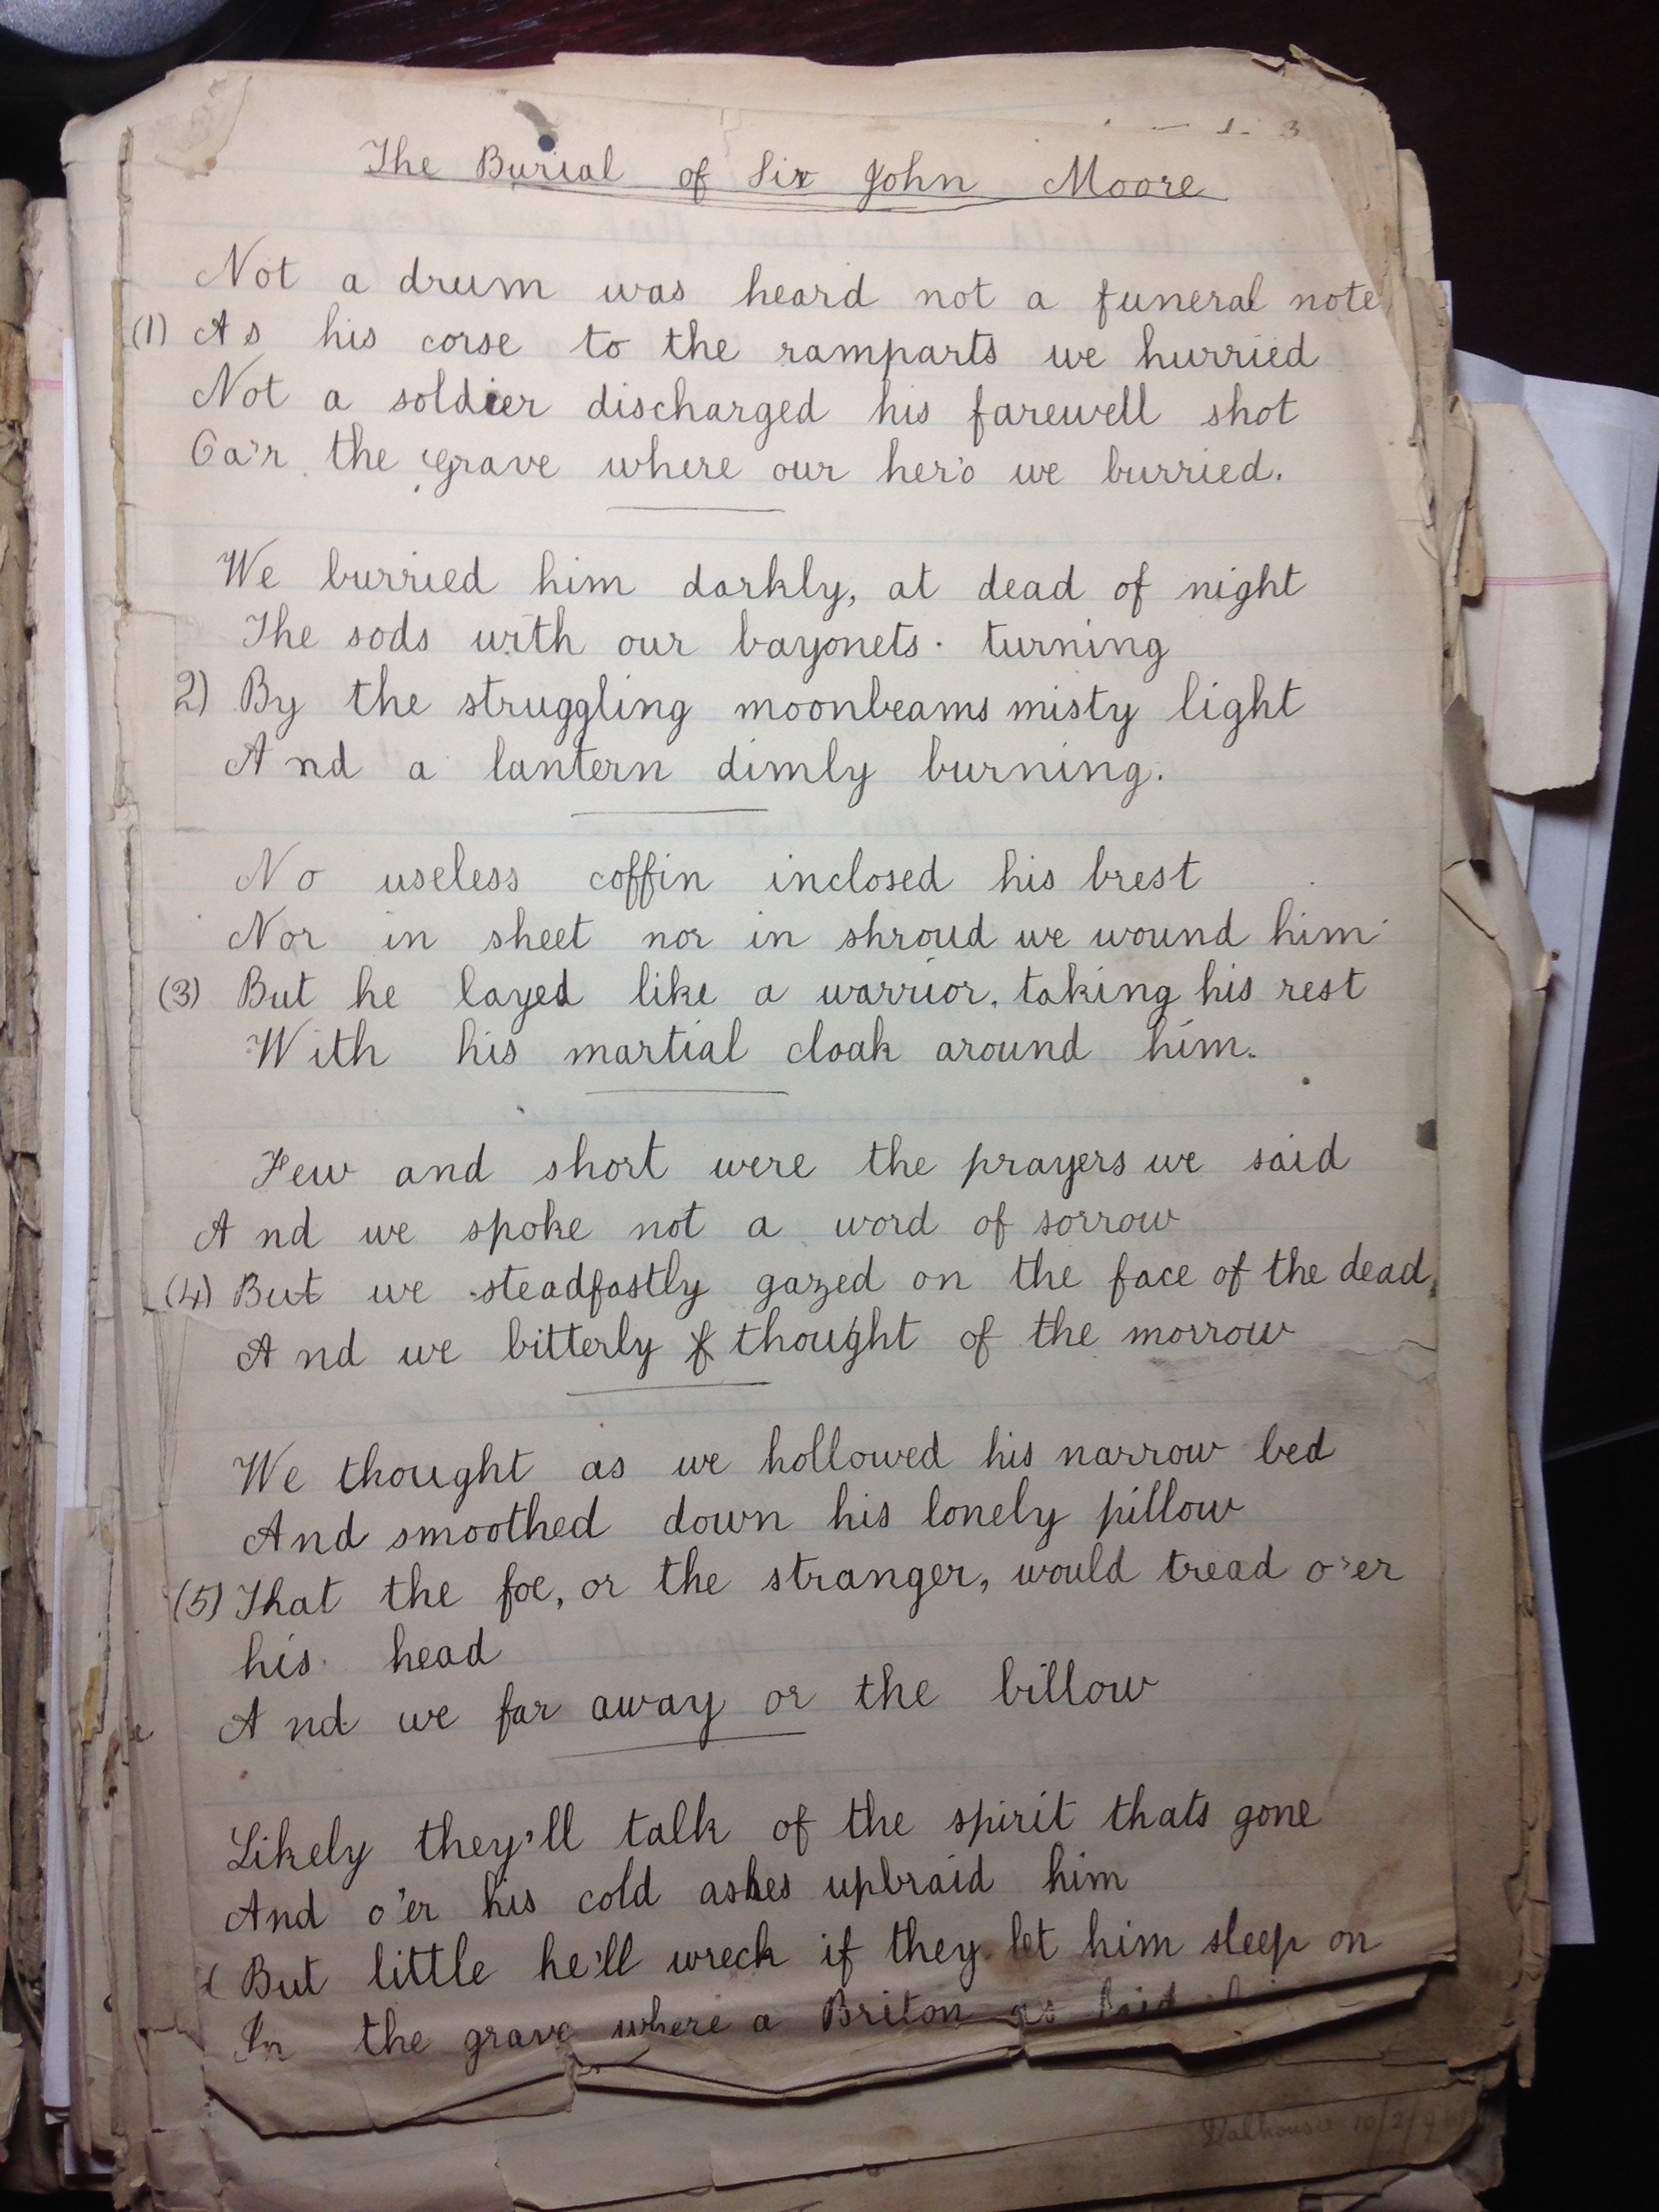 The Burial of Sir John Moore
Not a drum was heard not a funeral note
(1) As his corse to the ramparts we hurried
Not a soldier discharged his farewell shot
Oa'r the grave where our her'o we burried.
We burried him darkly, at dead of night
The sods with our bayonets. turning
2) By the struggling moonbeams misty light
And a lantern dimly burning.
No useless coffin inclosed his brest
Nor in sheet nor in shroud we wound him
(3) But he layed like a warrior, taking his rest
With his martial cloak around him.
Few and short were the prayers we said
And we spoke not a word of sorrow
(4) But we steadfastly gazed on the face of the dead,
And we bitterly thought of the morrow
We thought as we hollowed his narrow bed
And smoothed down his lonely pillow
(5) That the foe, or the stranger, would tread o'er
his head
And we far away or the billow
Likely they'll talk of the spirit thats gone
And o'er his cold ashes upbraid him
But little he'll wreck if they let him sleep on
In the grave where a Briton as laid
Dalhousie 10/2/